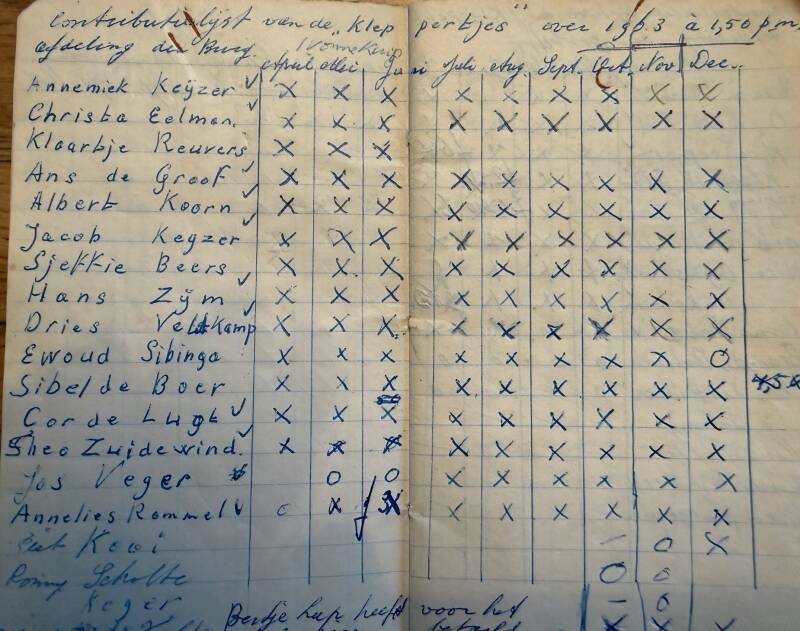 Contributielijst van de "Kleppertjes" over 1963 à 1,50 p.m.
afdeling den Burg.
April Mei Juni Juli Aug. Sept. Oct. Nov. Dec.
Annemiek Keÿzer ✓ X X X X X X X X X
Christa Eelman. X X X X X X X X X
Klaartje Reuvers X X X
Ans de Groof ✓ X X X X X X X X X
Albert Koorn ✓ X X X X X X X X X
Jacob Keyzer X X X X X X X X X
Sjekkie Beers ✓ X X X X X X X X X
Hans Zÿm ✓ X X X X X X X X X
Dries Veltkamp X X X X X X X X X
Ewoud Sibinga X X X X X X X X O
Sibel de Boer X X X X X X X X X
Cor de Lugt ✓ X X X X X X X X X
Theo Zuidewind. ✓ X X X X X X X X X
Jos Veger O O X X X X X X
Annelies Rommel ✓ O X X X X X X X X
Piet Kooi – O X
Ronny Scholte O O
Keger – O
Bertje heeft voor het
betaald X X X